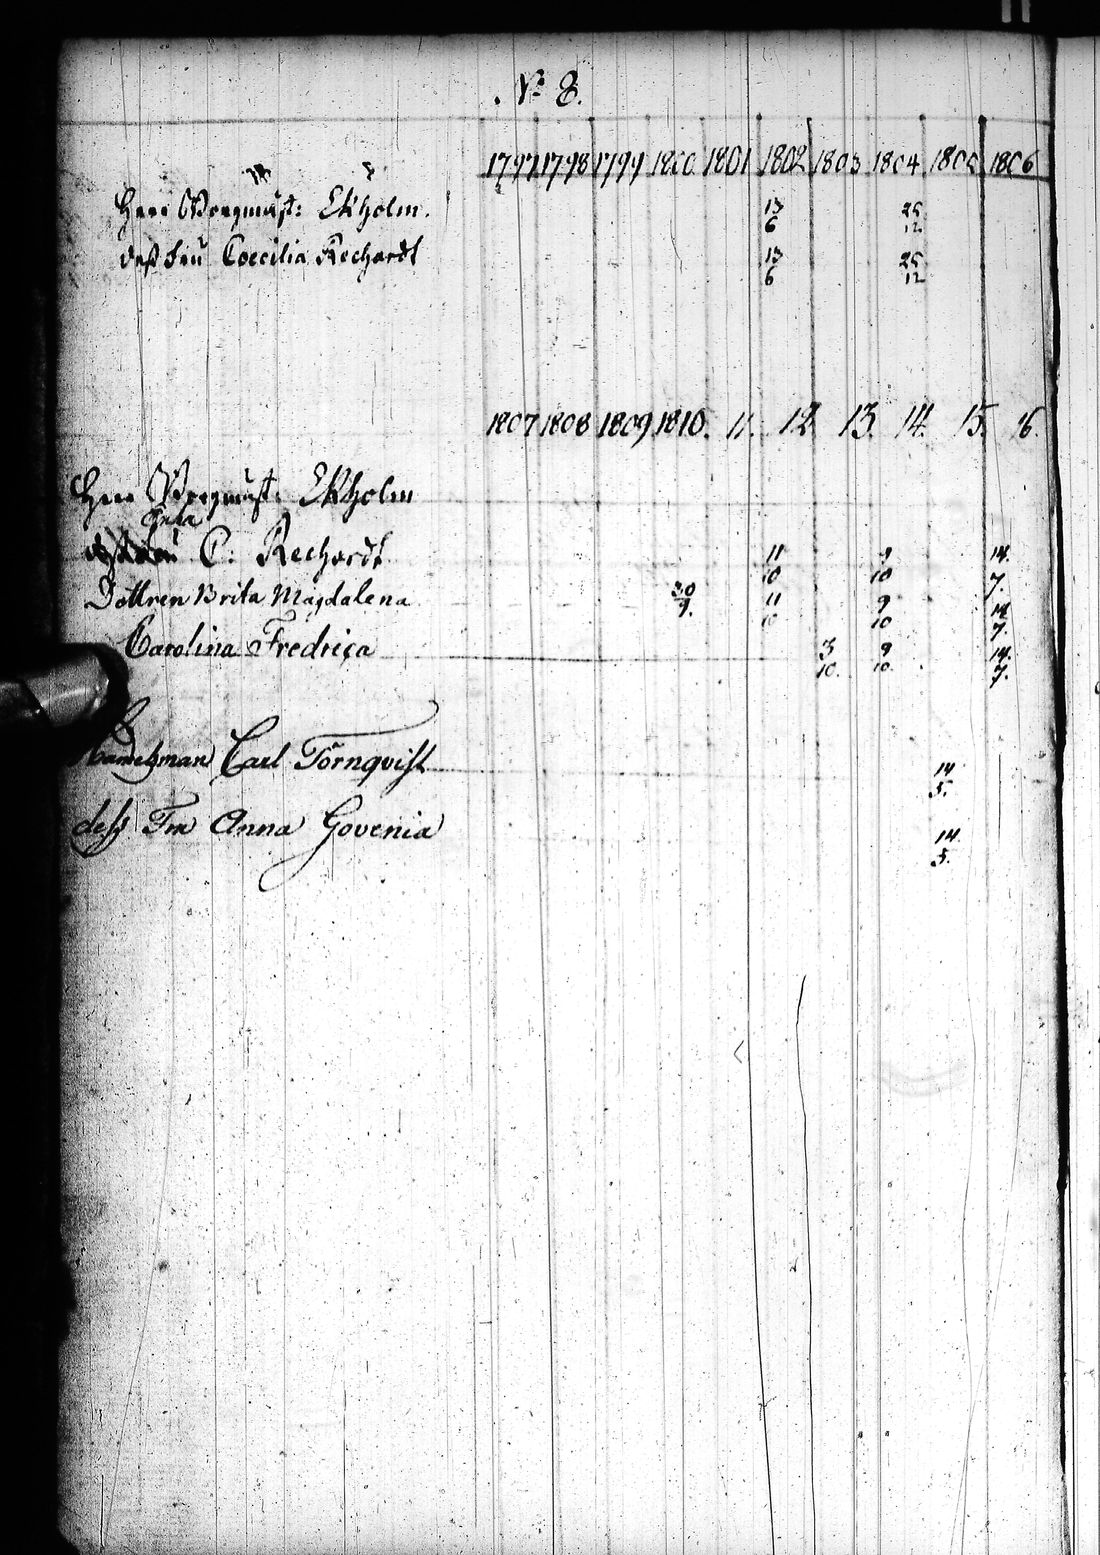 No 8.
1797 1798 1799 1800 1801 1802 1803 1804 1805 1806
Herr Borgmäst: Ekholm. 13 25
6 12
dess fru Coecilia Rechardt 13 25
6 12
1807 1808 1809 1810. 11. 12 13. 14. 15. 16.
Herr Borgmäst: Ekholm
Enka
C: Rechardt 11 9 14.
10 10 7.
Dottren Brita Magdalena 30 11 9 14
9. 10 10 7.
Carolina Fredrica 3 9 14.
10. 10. 7.
Handelsman Carl Törnqvist 14
5.
dess Fru Anna Govenia 14.
5.